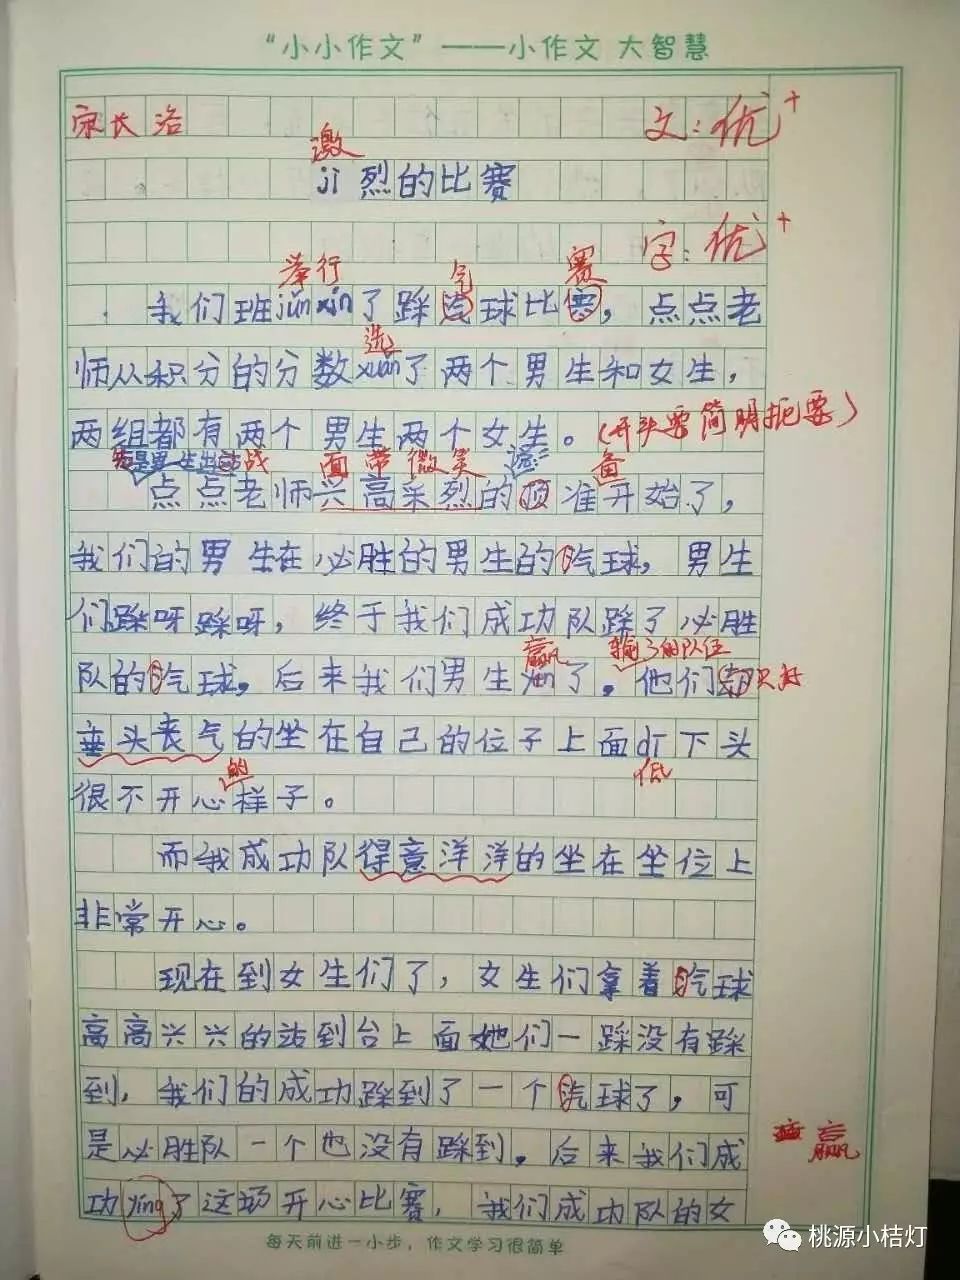 “小小作文”——小作文 大智慧
宋长洛
文:优+
激
jī 烈的比赛
字:优+
举行 气 赛
我们班jǔn xín了踩汽球比赛，点点老
选
师从积分的分数xuǎn了两个男生和女生，
两组都有两个男生两个女生。(开头要简明扼要)
先是男生出战 面带微笑 备
点点老师兴高采烈的 准开始了，
我们的男生在必胜的男生的汽球，男生
们踩呀踩呀，终于我们成功队踩了必胜
赢 输了的队伍
队的汽球，后来我们男生yín了。他们都 只好
垂头丧气的坐在自己的位子上面dī下头
的 低
很不开心样子。
而我成功队得意洋洋的坐在坐位上
非常开心。
现在到女生们了，女生们拿着汽球
高高兴兴的站到台上面她们一踩没有踩
到，我们的成功踩到了一个汽球了，可
是必胜队一个也没有踩到。后来我们成
赢
功ying了这场开心比赛，我们成功队的女
每天前进一小步，作文学习很简单
桃源小桔灯